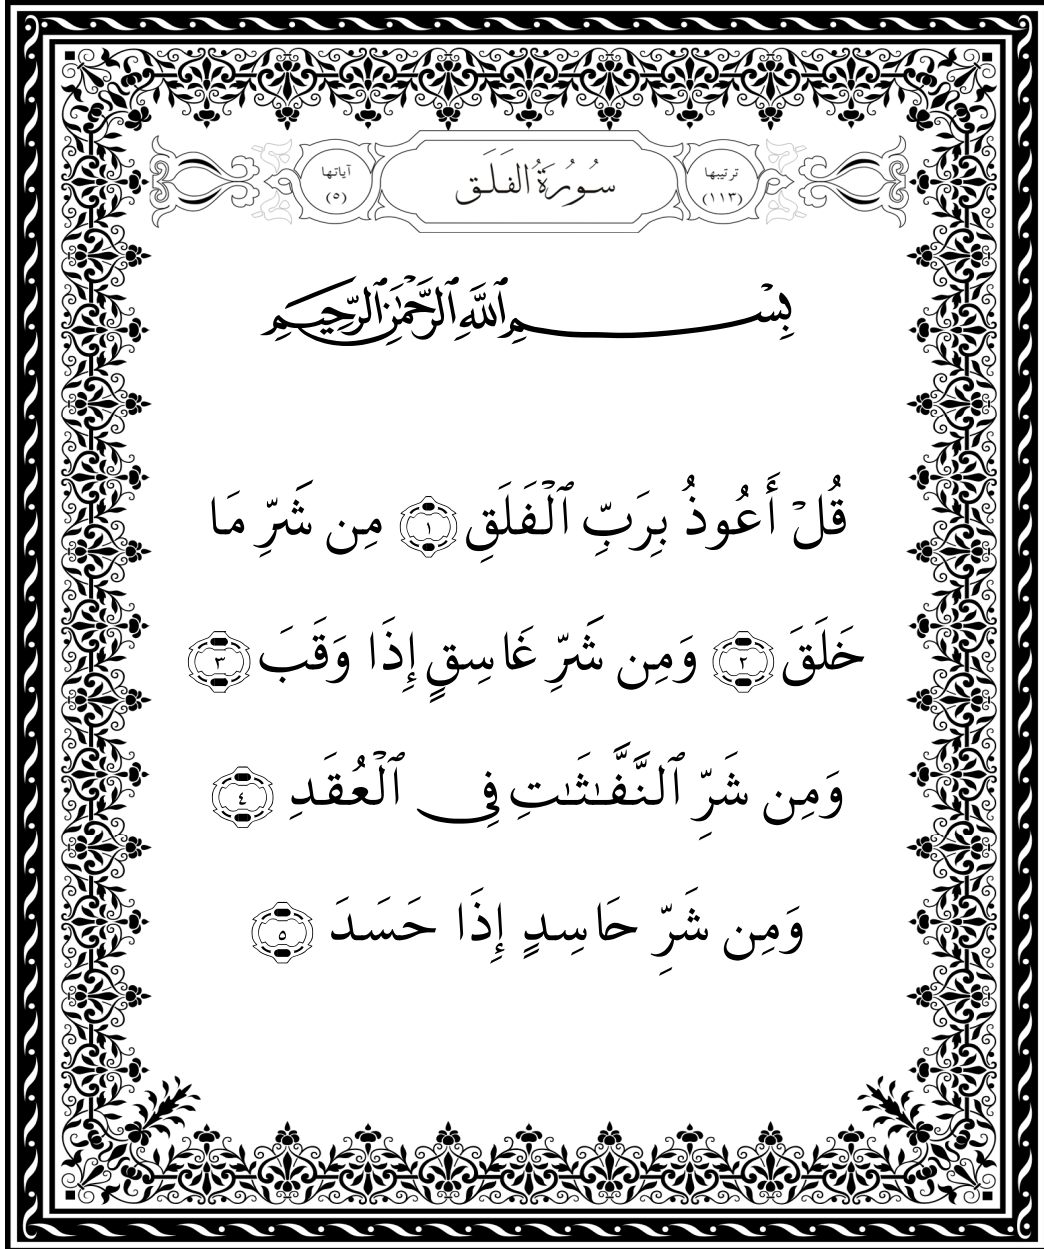 ترتيبها
(١١٣)
سُورَةُ الفَلَق
آياتها
(٥)
بِسْمِ ٱللَّهِ ٱلرَّحْمَٰنِ ٱلرَّحِيمِ
قُلْ أَعُوذُ بِرَبِّ ٱلْفَلَقِ ١ مِن شَرِّ مَا
خَلَقَ ٢ وَمِن شَرِّ غَاسِقٍ إِذَا وَقَبَ ٣
وَمِن شَرِّ ٱلنَّفَّـٰثَـٰتِ فِى ٱلْعُقَدِ ٤
وَمِن شَرِّ حَاسِدٍ إِذَا حَسَدَ ٥